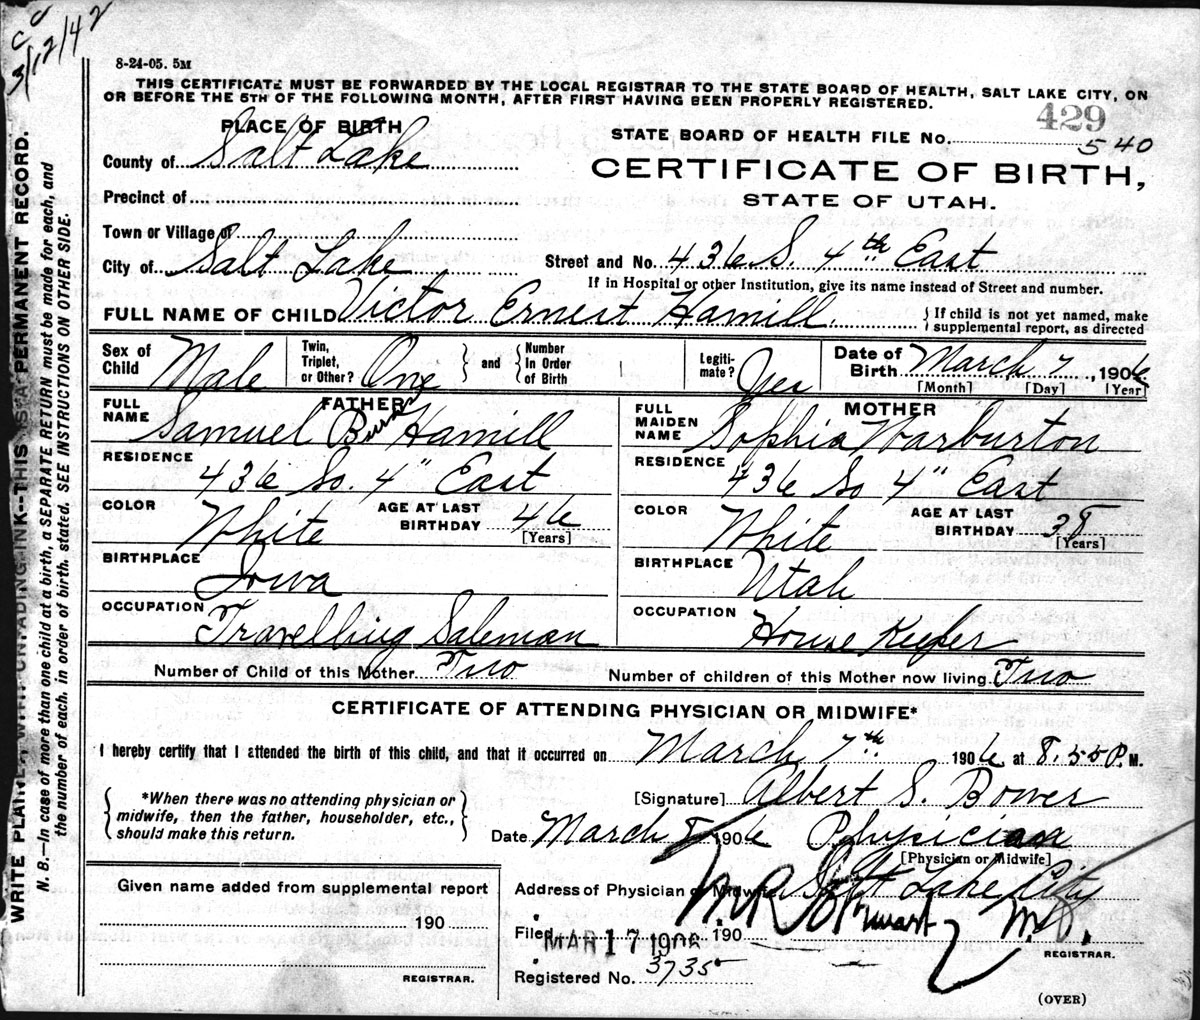 cc
3/12/42
8-24-05. 5M
THIS CERTIFICATE MUST BE FORWARDED BY THE LOCAL REGISTRAR TO THE STATE BOARD OF HEALTH, SALT LAKE CITY, ON
OR BEFORE THE 5TH OF THE FOLLOWING MONTH, AFTER FIRST HAVING BEEN PROPERLY REGISTERED.
429
PLACE OF BIRTH
STATE BOARD OF HEALTH FILE No. 540
County of Salt Lake
CERTIFICATE OF BIRTH,
Precinct of
STATE OF UTAH.
Town or Village of
City of Salt Lake
Street and No. 436 S. 4th East
If in Hospital or other Institution, give its name instead of Street and number.
FULL NAME OF CHILD Victor Ernest Hamill
If child is not yet named, make
supplemental report, as directed
Sex of Child Male
Twin, Triplet, or Other? One
and
Number In Order of Birth
Legiti- mate? Yes
Date of Birth March 7, 1906
[Month] [Day] [Year]
FATHER
FULL NAME Samuel Burk Hamill
RESIDENCE 436 So. 4" East
COLOR White
AGE AT LAST BIRTHDAY 46
[Years]
BIRTHPLACE Iowa
OCCUPATION Travelling Saleman
MOTHER
FULL MAIDEN NAME Sophia Warburton
RESIDENCE 436 So 4" East
COLOR White
AGE AT LAST BIRTHDAY 38
[Years]
BIRTHPLACE Utah
OCCUPATION House Keeper
Number of Child of this Mother Two
Number of children of this Mother now living Two
CERTIFICATE OF ATTENDING PHYSICIAN OR MIDWIFE*
I hereby certify that I attended the birth of this child, and that it occurred on March 7th 1906 at 8.55 P. M.
*When there was no attending physician or
midwife, then the father, householder, etc.,
should make this return.
[Signature] Albert S. Bower
Date March 8 1906 Physician
[Physician or Midwife]
Given name added from supplemental report
190
REGISTRAR.
Address of Physician or Midwife Salt Lake City
Filed MAR 17 1906 190
M.D.
REGISTRAR.
Registered No. 3735
(OVER)
WRITE PLAINLY, WITH UNFADING INK--THIS IS A PERMANENT RECORD.
N. B.—In case of more than one child at a birth, a SEPARATE RETURN must be made for each, and
the number of each, in order of birth, stated. SEE INSTRUCTIONS ON OTHER SIDE.